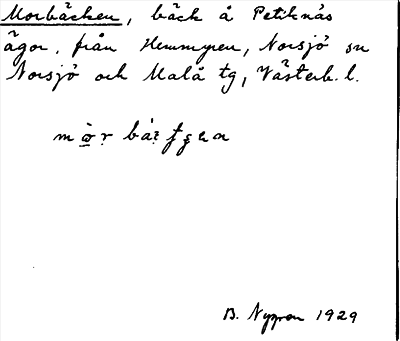 Morbäcken, bäck å Petiknäs
ägor, från Hemmyren, Norsjö sn
Norsjö och Malå tg, Västerb. l.
B. Nygren 1929